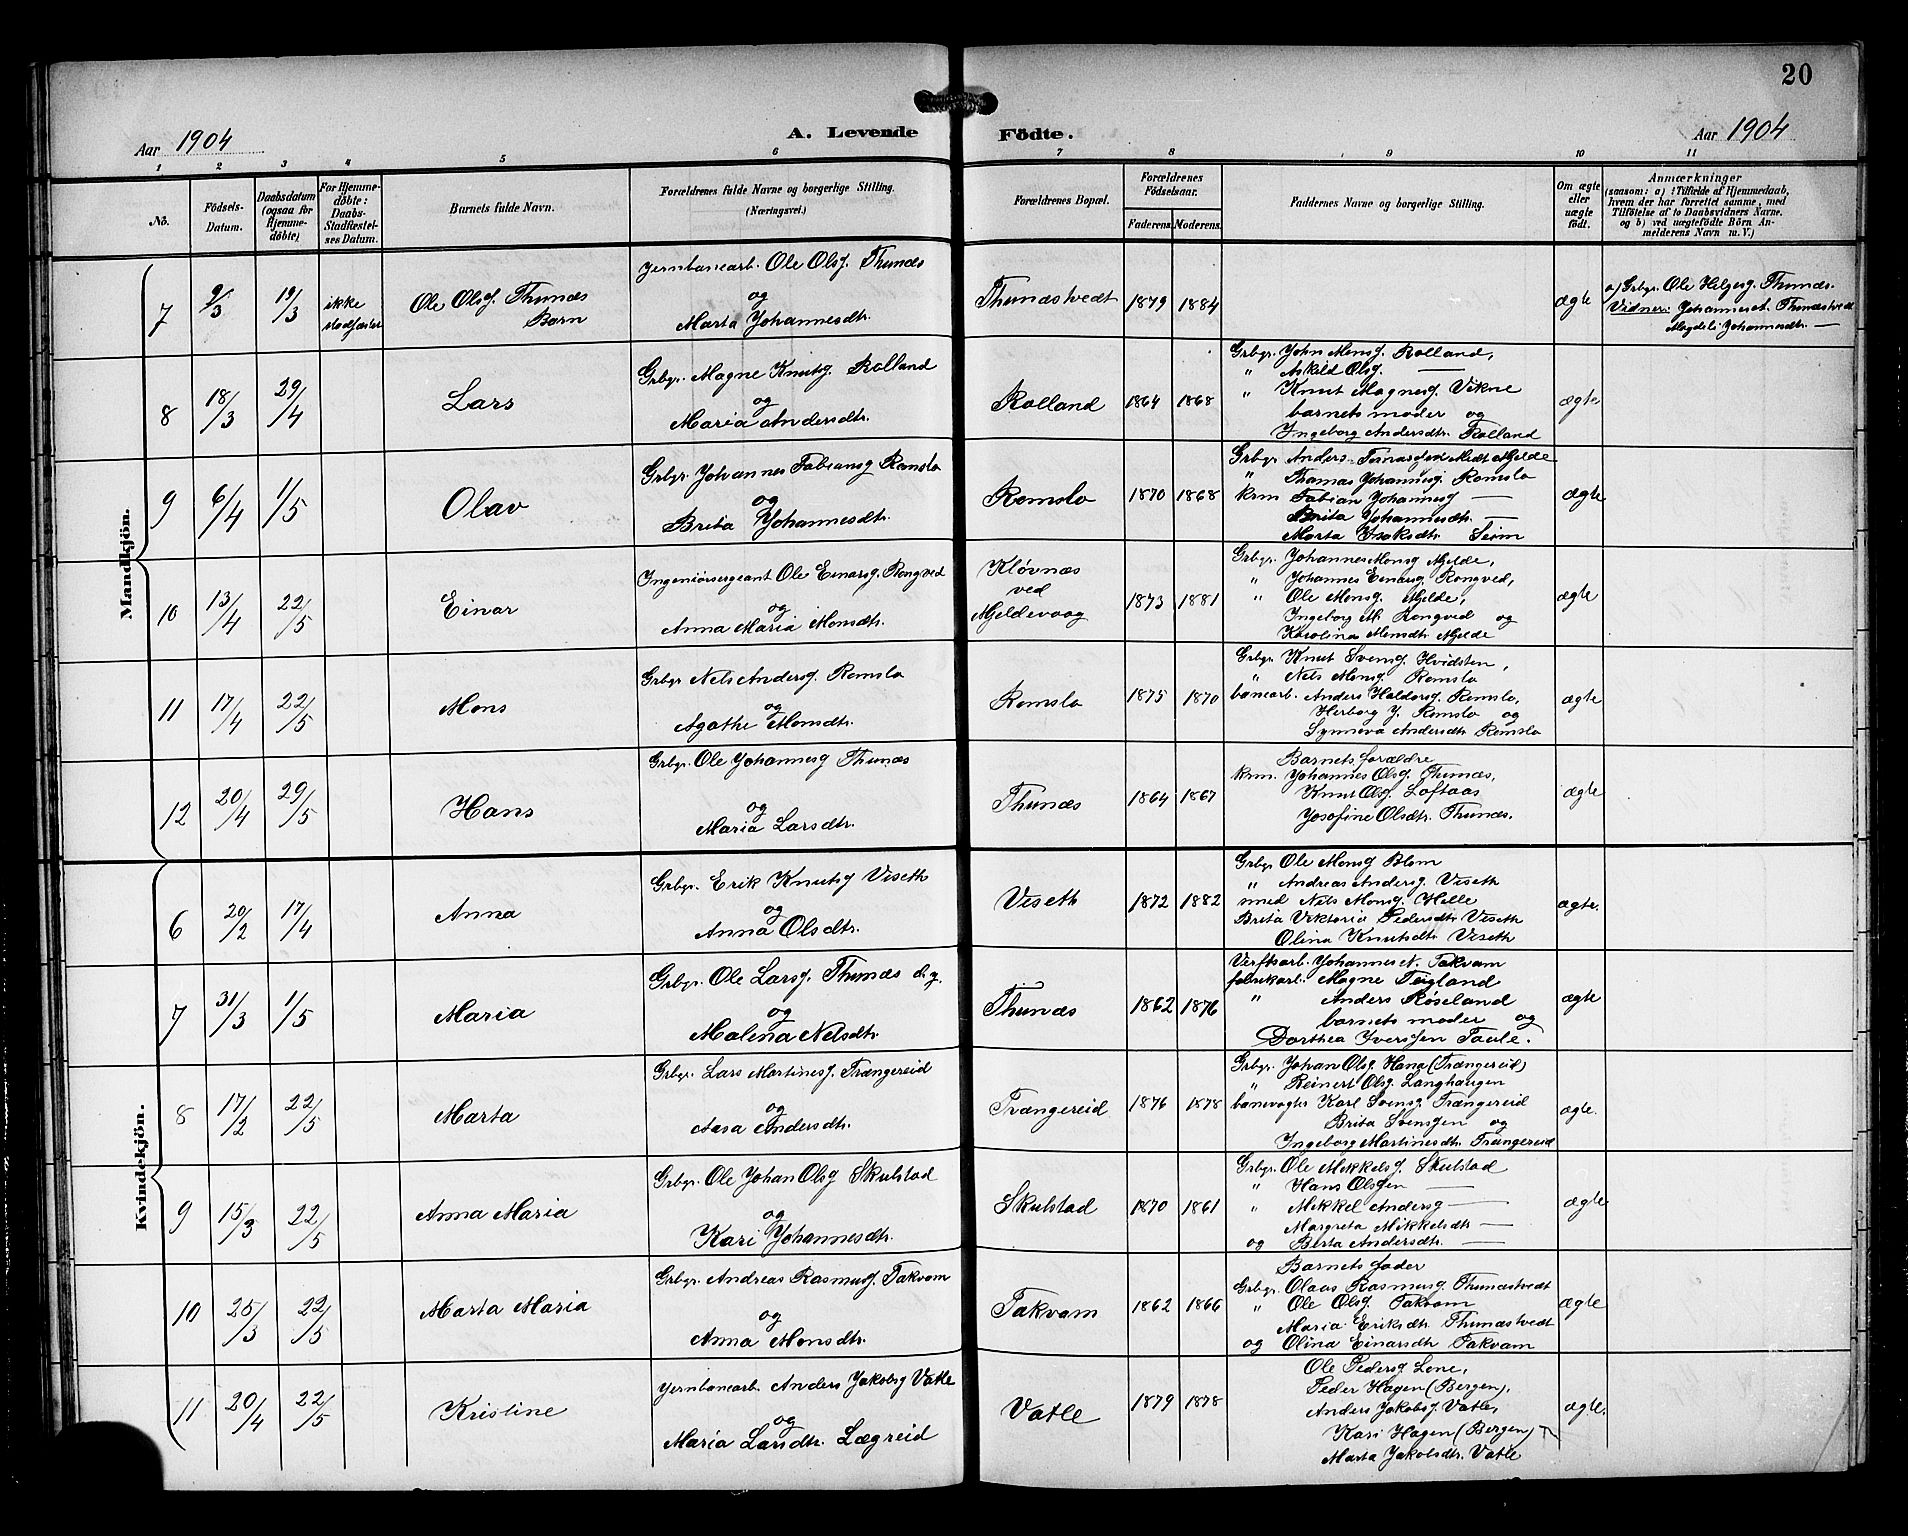 20
Aar 1904
A. Levende Födte.
Aar 1904
1 2 3 4 5 6 7 8 9 10 11
No.
Födsels-Datum.
Daabsdatum (ogsaa for Hjemme-døbte)
For Hjemme-døbte: Daabs-Stadfæstel-ses Datum.
Barnets fulde Navn.
Forældrenes fulde Navne og borgerlige Stilling.
(Næringsvei.)
Forældrenes Bopæl.
Forældrenes Födselsaar.
Faderens. Moderens.
Faddernes Navne og borgerlige Stilling.
Om ægte eller uægte født.
Anmærkninger
(saasom: a) i Tilfælde af Hjemmedaab,
hvem der har forrettet samme, med
Tilföielse af to Daabsvidners Navne,
og b) ved uægtefødte Börn An-
melderens Navn m. V.)
Mandkjön.
7 9/3 19/3 ikke stadfæstet
Ole Olsf. Thunæs
Børn
Jernbanearb. Ole Olsf. Thunæs
og
Marta Johannesdtr.
Thunæstvedt 1879 1884
ægte
a) Grbgr. Ole Helgesg. Thunæs.
Vidner: Johannes et. Thunæstvedt
Magdeli Johannesdtr. —
8 18/3 29/4 Lars
Grbgr. Magne Knutsg. Rolland
og
Maria Andersdtr.
Rolland 1864 1868
Grbgr. John Monsg. Rolland,
" Askild Olsg. —
" Knut Magnesg. Vikne
barnets moder og
Ingeborg Andersdtr. Rolland
ægte
9 6/4 1/5 Olav
Grbgr. Johannes Fabiansg Romslo
og
Brita Johannesdtr.
Romslo 1870 1868
Grbgr. Anders Mjelde
" Thomas Johannesg. Romslo
krm Fabian Johannesg —
Brita Johannesdtr. —
Marta Isaksdtr. Seim
ægte
10 13/4 22/5 Einar
Ingeniørsergeant Ole Einarsg. Rongved
og
Anna Maria Monsdtr.
Kløvnæs
ved
Mjeldevaag
1873 1881
Grbgr. Johannes Monsg Mjelde,
" Johannes Einarsg. Rongved,
" Ole Monsg. Mjelde,
Ingeborg M. Rongved og
Karolina Monsdtr Mjelde
ægte
11 17/4 22/5 Mons
Grbgr Nels Andersg. Romslo
og
Agathe Monsdtr.
Romslo 1875 1870
Grbgr. Knut Svensg. Hvidsten,
" Nels Monsg. Romslo
banearb. Anders Haldorsg. Romslo,
Herborg J. Romslo og
Synneva Andersdtr Romslo
ægte
12 20/4 29/5 Hans
Grbgr. Ole Johannesg Thunæs
og
Maria Larsdtr.
Thunæs 1864 1867
Barnets forældre
krm. Johannes Olsg. Thunæs,
Knut Olsg. Loftaas
Josofine Olsdtr. Thunæs.
ægte
Kvindekjön.
6 20/2 17/4 Anna
Grbgr. Erik Knutsg Viseth
og
Anna Olsdtr.
Viseth 1872 1882
Grbgr Ole Monsg Blom
" Andreas Andersg. Viseth
smed Nels Monsg. Helle
Brita Viktoria Pedersdtr Viseth
Olina Knutsdtr Viseth
ægte.
7 31/3 1/5 Maria
Grbgr. Ole Larsg. Thunæs d. y.
og
Malena Nelsdtr
Thunæs 1862 1876
Verftsarb. Johannes N. Takvam
fabrikarb. Magne Teigland
" Anders Røseland
barnets moder og
Dorthea Iversen Taule.
ægte
8 17/2 22/5 Marta
Grbgr. Lars Martinesg. Trængereid
og
Aasa Andersdtr.
Trængereid 1876 1878
Grbgr. Johan Olsg. Hana (Trængereid)
" Reinert Olsg. Langhaugen
banevogter Karl Svensg. Trængereid
Brita Svensgen og
Ingeborg Martinesdtr Trængereid
ægte.
9 15/3 22/5 Anna Maria
Grbgr. Ole Johan Olsg Skulstad
og
Kari Johannesdtr.
Skulstad 1870 1861
Grbgr. Ole Mikkelsg. Skulstad
" Hans Olsgen —
" Mikkel Andersg —
Margreta Mikkelsdtr —
og Berta Andersdtr. —
ægte
10 25/3 22/5 Marta Maria
Grbgr. Andreas Rasmusg. Takvam
og
Anna Monsdtr.
Takvam 1862 1866
Barnets fader
Grbgr. Olaas Rasmusg. Thunæstvedt
" Ole Olsg. Takvam
Maria Eriksdtr Thunæstvedt
og Olina Einarsdtr Takvam
ægte
11 20/4 22/5 Kristine
Jernbanearb. Anders Jakobsg Vatle
og
Maria Larsdtr. Lægreid
Vatle 1879 1878
Ole Pedersg Lone,
Peder Hagen (Bergen),
Anders Jakobsg. Vatle,
Kari Hagen (Bergen)
Marta Jakobsdtr. Vatle
ægte.